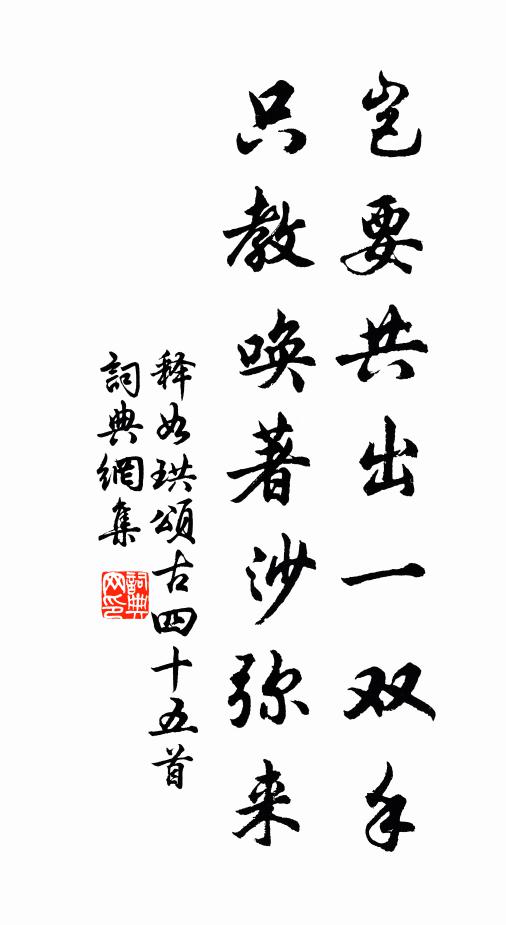 岂要共出一双手
只教唤著沙弥来
释如珙頌古四十五首
詞典網集
詞典网印